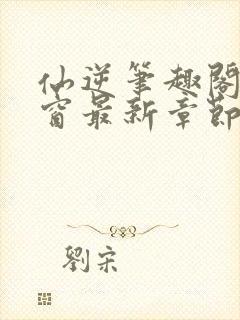 仙逆筆趣閣
窗最新章節
劉宋